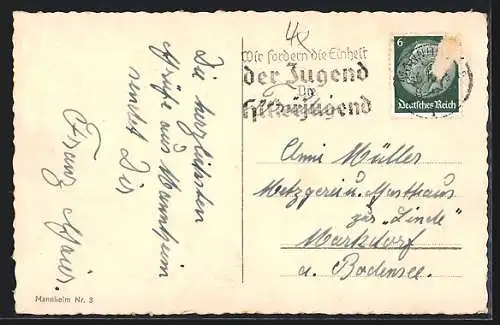 Die herzlichsten
Grüße aus Mannheim
sendet Dir
Franz Maier.
Mannheim Nr. 3
4x
Wir fordern die Einheit
der Jugend
Die
Hitlerjugend
6
Deutsches Reich
Anni Müller
Metzgerei u. Gasthaus
zur "Linde"
Markdorf
a. Bodensee.